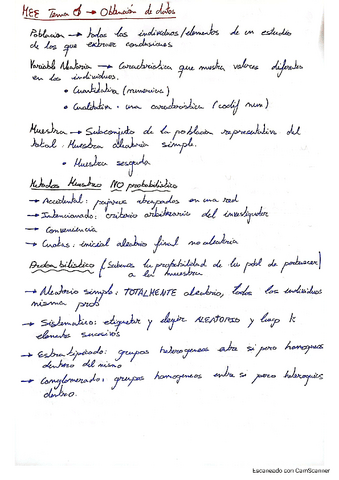 MEE Tema 1 → Obtención de datos
Poblacion → todos los individuos/elementos de un estudio
de los que extraer conclusiones
Variable Aleatoria → Caracteristica que muestra valores diferentes
en los individuos.
• Cuantitativa (numericas)
• Cualitativa - una caracteristica (codif num)
Muestra → Subconjunto de la poblacion representativa del
total. Muestra aleatoria simple.
• Muestra sesgada
Metodos Muestreo NO probabilistico
→ Accidental: pajaros atrapados en una red
→ Intencionado: criterio arbitrario del investigador
→ Conveniencia
→ Cuotas: inicial aleatorio final no aleatoria
(Sabemos la probabilidad de la pobl de pertenecer)
a la muestra
→ Aleatorio simple: TOTALMENTE aleatorio, todos los individuos
misma prob
→ Sistematico: etiquetar y elegir ALEATORIO y luego k
elementos sucesivos
→ Estratificado: grupos heterogeneos entre si pero homogeneos
dentro del mismo
→ Conglomerado: grupos homogeneos entre si pero
dentro.
Escaneado con CamScanner